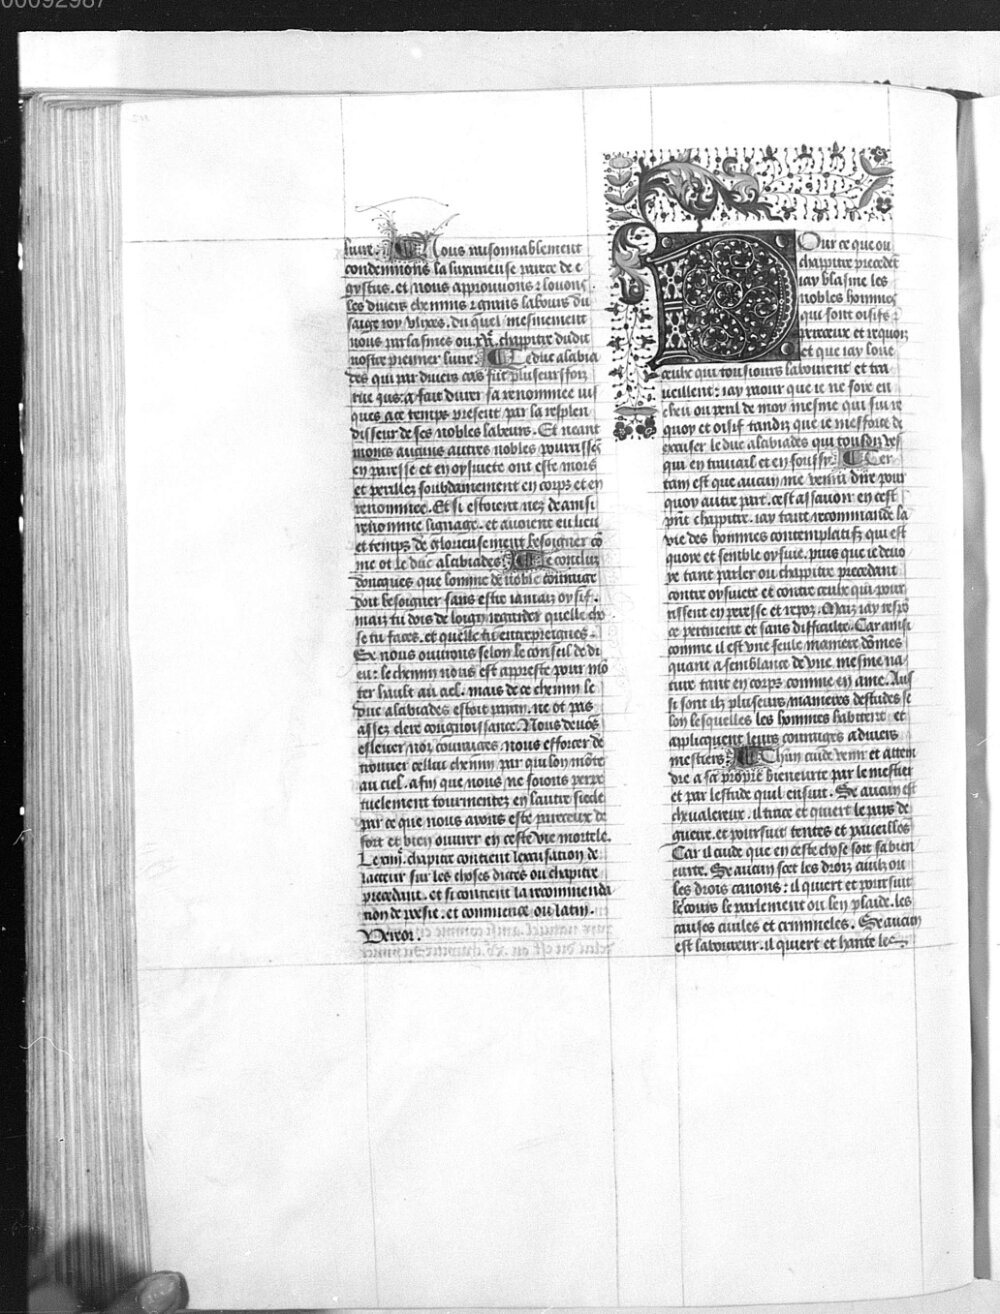 00092987
liure. Nous raisonnablement
condemnons la luxurieuse paresce de e
gystus. et nous approuuons ⁊ louons
les diuers chemins ⁊ grans labours du
saige roy vlixes. du quel mesmement
nous parlasmes ou chappitre dudit
nostre premier liure. Le duc alabia
des qui par diuers cas fut plus eurs fort
tue a fait durer sa renommee ius
ques a ce temps present par la resplen
disseur de ses nobles labeurs. Et neant
moins aucuns autres nobles pourrissẽ
en paresse et en oysiuete ont este mors
et perillez soubdainement en corps et en
renommee. Et si estoient nez de ainsi
renomme lignage. et auoient eu lieu
et temps de glorieusement besoigner cõ
me ot le duc alabiades. Je concluz
doncques que lomme de noble couraige
doit besoigner sans estre iamais oysif.
mais tu dois de loing regarder quelle cho
se tu faces. et quelle tu entrepreignes.
Se nous ouurons selon le conseil de di
eu: le chemin nous est appreste pour mõ
ter hault au ciel. mais de ce chemin le
duc alabiades estoit paien. ne ot pas
assez clere congnoissance. Nous deuõs
esleuer noz couraiges. nous efforcer de
trouuer cellui chemin par qui lon mõte
au ciel. afin que nous ne soions perpe
tuelement tourmentez en lautre siecle
par ce que nous auons este pareceux de
fort et bien ouurer en ceste vie mortele.
Le xiiijͤ. chapitre contient lexcusation de
lacteur sur les choses dictes ou chapitre
precedent. et si contient la recommenda
tion de poesie. et commence ou latin.
Vereor.
Pour ce que ou
chappitre precedẽt
iay blasme les
nobles hommes
qui sont oisifz ⁊
pereceux et requoiz
et que iay loue
ceulx qui tousiours labourent et tra
ueillent: iay paour que ie ne soie en
cheu ou peril de moy mesme qui suis re
quoy et oisif tandiz que ie mefforce de
excuser le duc alabiades qui tousdiz ves
qui en trauail et en soussy. Cer
tain est que aucun me venra dire pour
quoy autre part. cest assauoir en cest
pñt chappitre. iay tant recommande la
vie des hommes contemplatifz qui est
quoye et semble oysiue. puis que ie deuo
ye tant parler ou chappitre precedant
contre oysiuete et contre ceulx qui pour
rissent en peresse et repoz. Mais iay respõ
ce pertinent et sans difficulte. Car ainsi
comme il est vne seule maniere dõmes
quant a semblance de vne mesme na
ture tant en corps comme en ame. Aus
si sont ilz plusieurs manieres destudes se
lon lesquelles les hommes habitent et
applicquent leurs couraiges a diuers
mestiers. Chũn cuide venir et attein
dre a sa propre bieneurte par le mestier
et par lestude quil ensuit. Se aucun est
cheualereux. il trace et quiert le pays de
guerre. et poursuit tentes et paueillõs
Car il cuide que en ceste chose soit sa bien
eurte. Se aucun scet les droiz ciuilz ou
les drois canons: il quiert et poursuit
le cours le parlement ou len plaide. les
causes ciuiles et crimineles. Se aucun
est laboureur. il quiert et hante les